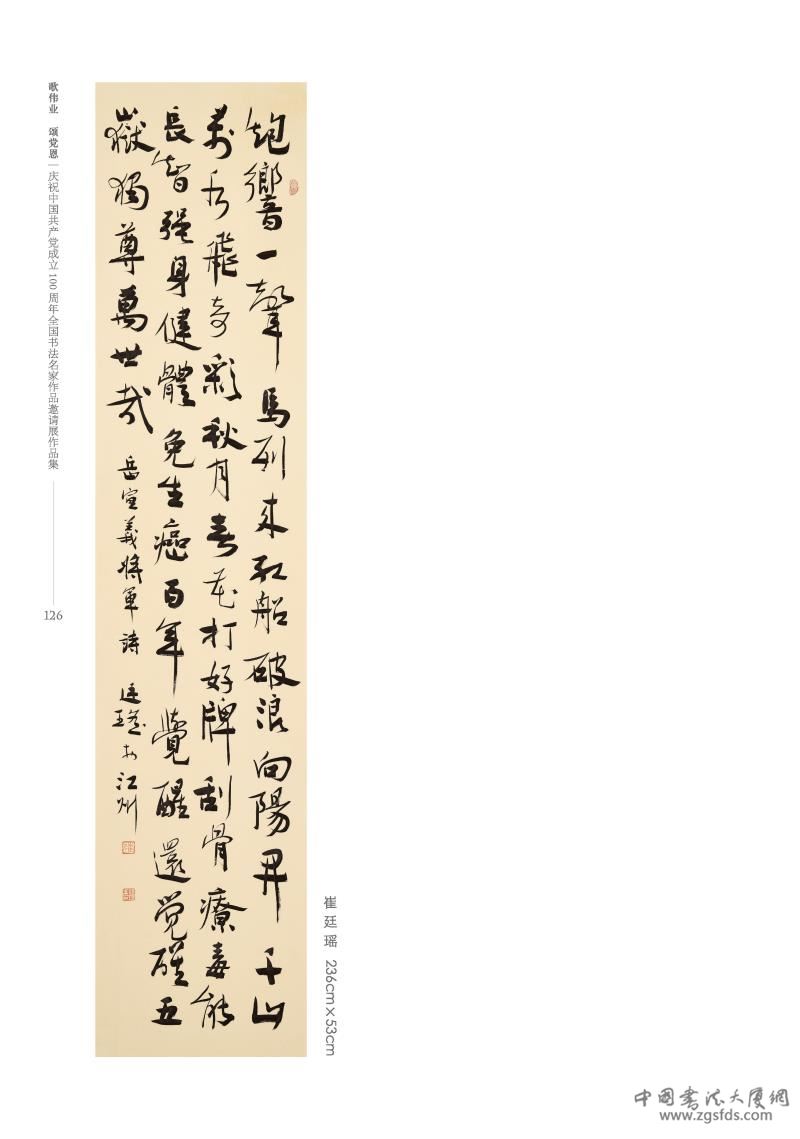 歌伟业 颂党恩 | 庆祝中国共产党成立100周年全国书法名家作品邀请展作品集
126
炮響一聲馬列来紅船破浪向陽開千山
萬水飛奇彩秋月春花打好牌刮骨療毒能
長智强身健體免生癌百年覺醒還觉醒五
嶽獨尊萬世哉 岳宣義將軍詩 廷瑶於江州
崔廷瑶 236cm×53cm
中国书法大厦网
www.zgsfds.com